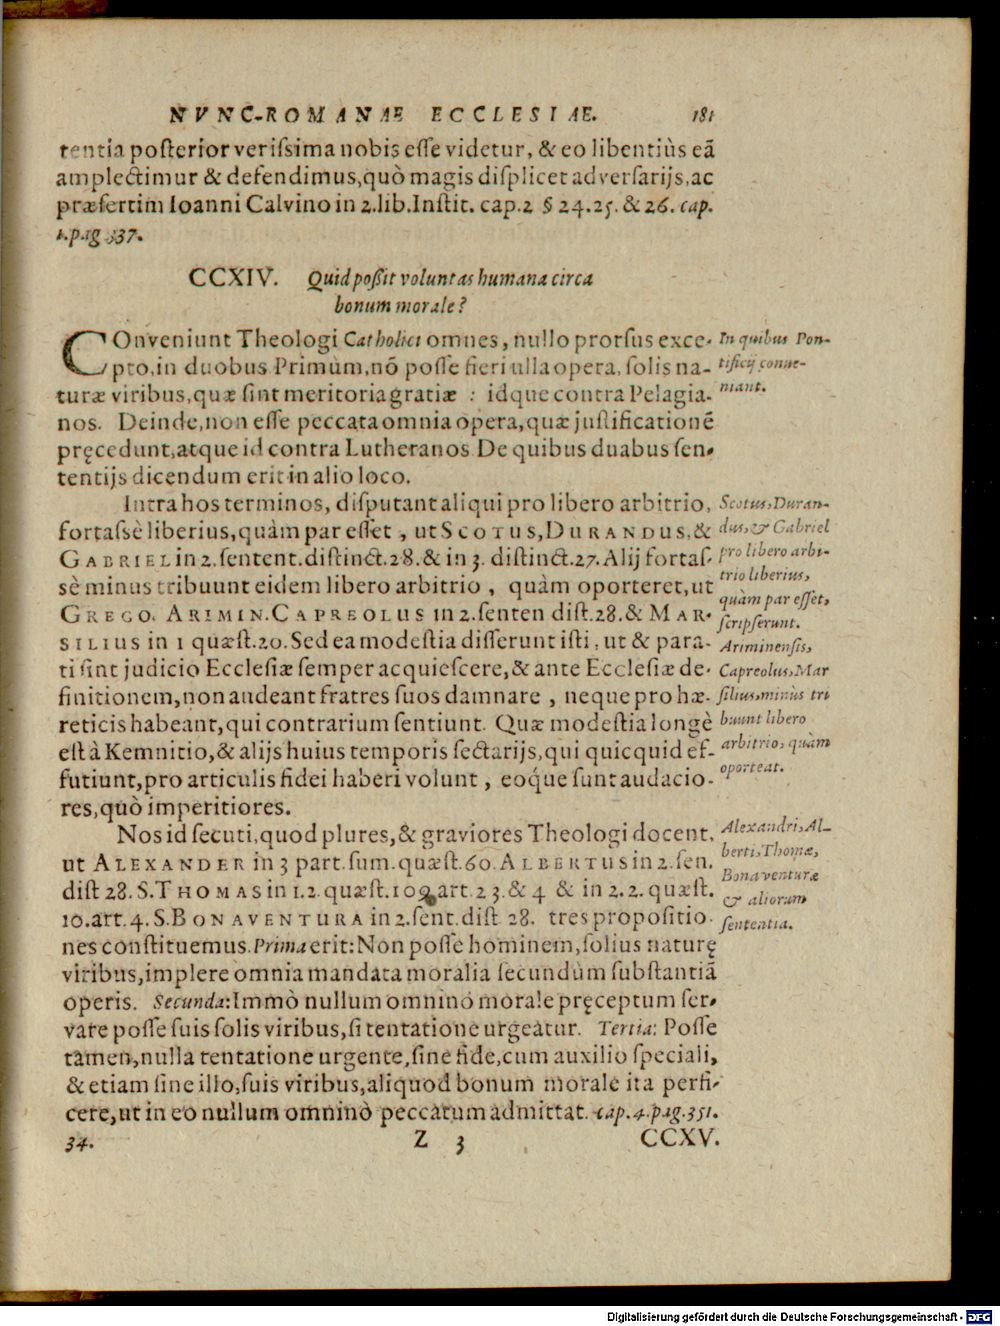 NVNC-ROMANAE ECCLESIAE. 181
tentia posterior verissima nobis esse videtur, & eo libentiùs eā
amplectimur & defendimus, quò magis displicet adversarijs, ac
præsertim Ioanni Calvino in 2. lib. Instit. cap. 2 § 24. 25. & 26. cap.
1. pag 337.
CCXIV. Quid possit voluntas humana circa
bonum morale?
COnveniunt Theologi Catholici omnes, nullo prorsus exce-
pto, in duobus Primùm, nō posse fieri ulla opera, solis na-
turæ viribus, quæ sint meritoria gratiæ : idque contra Pelagia-
nos. Deinde, non esse peccata omnia opera, quæ justificationē
pręcedunt, atque id contra Lutheranos De quibus duabus sen-
tentijs dicendum erit in alio loco.
In quibus Pon-
tificij conve-
niant.
Intra hos terminos, disputant aliqui pro libero arbitrio,
fortassè liberius, quàm par esset, ut SCOTUS, DURANDUS, &
GABRIEL in 2. sentent. distinct. 28. & in 3. distinct. 27. Alij fortas-
sè minus tribuunt eidem libero arbitrio, quàm oporteret, ut
GREGO. ARIMIN. CAPREOLUS in 2. senten dist. 28. & MAR-
SILIUS in 1 quæst. 20. Sed ea modestia disserunt isti, ut & para-
ti sint judicio Ecclesiæ semper acquiescere, & ante Ecclesiæ de-
finitionem, non audeant fratres suos damnare, neque pro hæ-
reticis habeant, qui contrarium sentiunt. Quæ modestia longè
est à Kemnitio, & alijs huius temporis sectarijs, qui quicquid ef-
futiunt, pro articulis fidei haberi volunt, eoq́ue sunt audacio-
res, quò imperitiores.
Scotus, Duran-
dus, & Gabriel
pro libero arbi-
trio liberius,
quàm par esset,
scripserunt.
Ariminensis,
Capreolus, Mar
silius, minùs tri
buunt libero
arbitrio, quàm
oporteat.
Nos id secuti, quod plures, & graviores Theologi docent,
ut ALEXANDER in 3 part. sum. quæst. 60. ALBERTUS in 2. sen.
dist 28. S. THOMAS in 1. 2. quæst. 109. art. 2 3. & 4 & in 2. 2. quæst.
10. art. 4. S. BONAVENTURA in 2. sent. dist 28. tres propositio-
nes constituemus. Prima erit: Non posse hominem, solius naturę
viribus, implere omnia mandata moralia secundùm substantiā
operis. Secunda: Immò nullum omninò morale pręceptum ser-
vare posse suis solis viribus, si tentatione urgeatur. Tertia: Posse
tamen, nulla tentatione urgente, sine fide, cum auxilio speciali,
& etiam sine illo, suis viribus, aliquod bonum morale ita perfi-
cere, ut in eo nullum omninò peccatum admittat. cap. 4. pag. 351.
Alexandri, Al-
berti, Thomæ,
Bonaventuræ
& aliorum
sententia.
34. Z 3 CCXV.
Digitalisierung gefördert durch die Deutsche Forschungsgemeinschaft - DFG